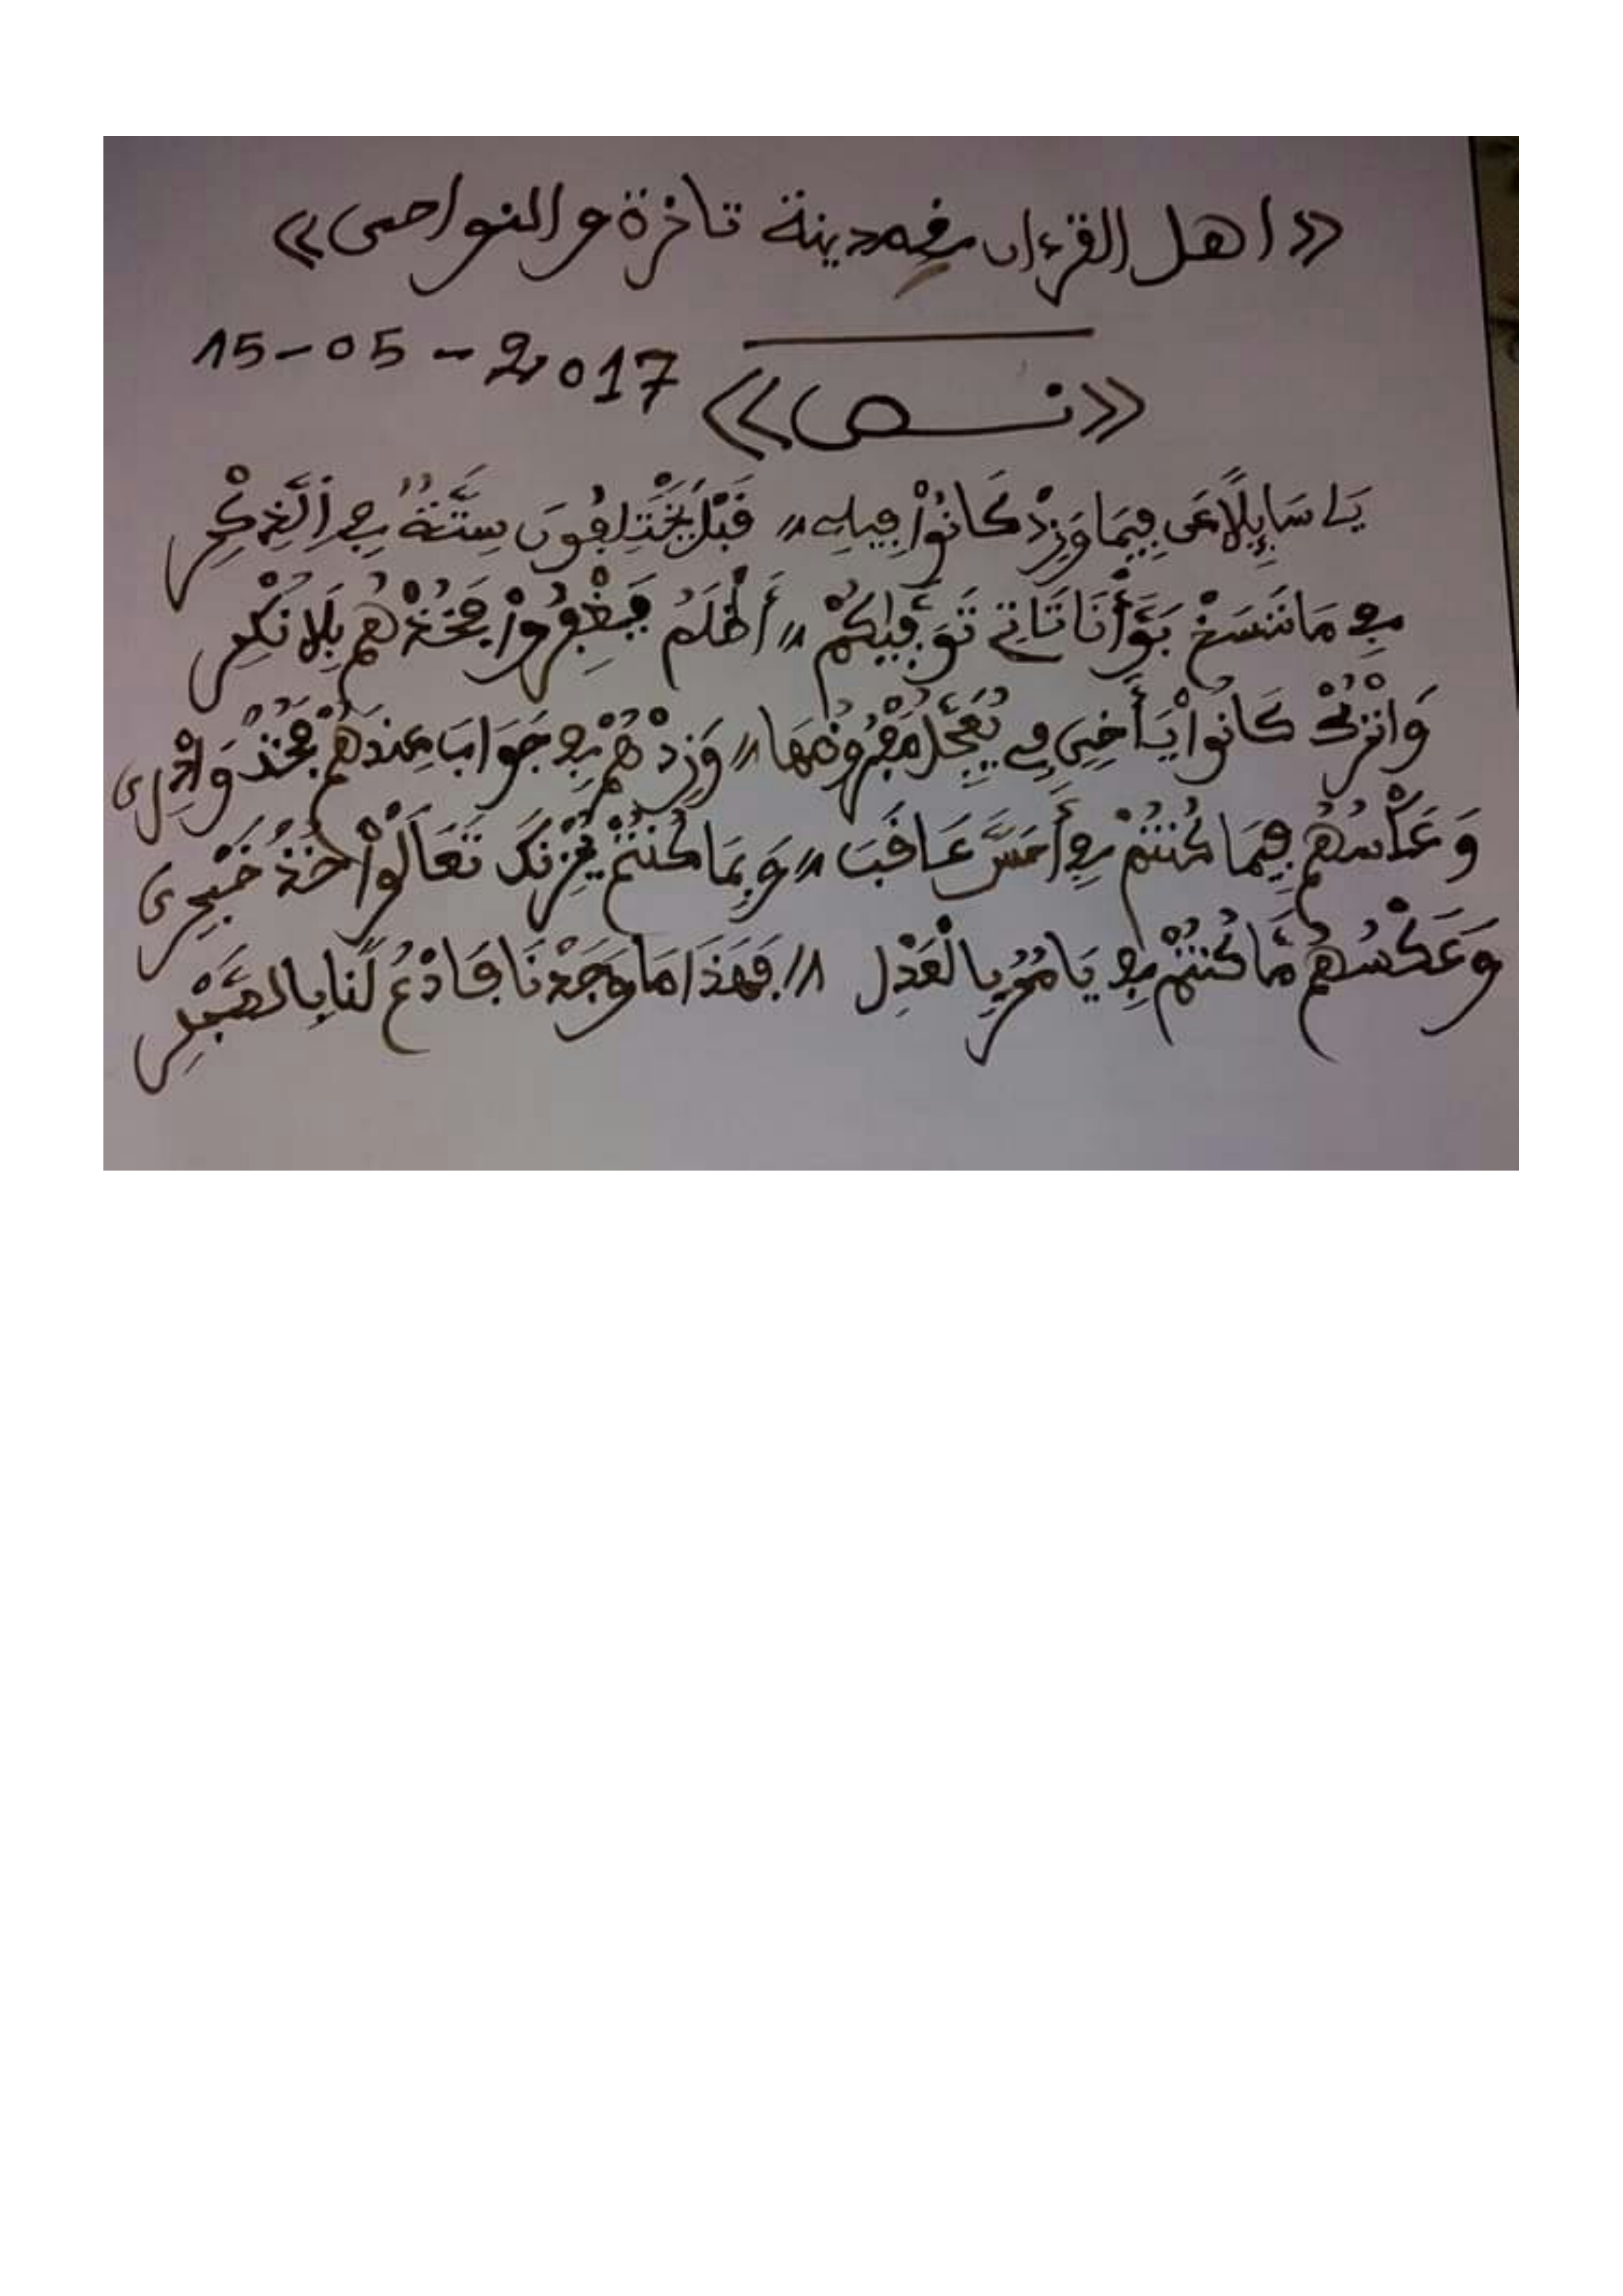 «اهل القرءان في مدينة تازة و النواحي»
15-05-2017
«نص»
يَا سَاإِلًا عَن فِيمَا وَزِدْ كَانُواْ فِيهِ // قَبْلَ يَخْتَلِفُونَ سِتَّةٌ فِي الذِّكْرِ
فِي مَا نَنسَخْ بَوَّأْنَا تَاتِي تَوَفِّيكُمْ // أَظْلَمُ فَخُذْهُم بِلَا نُكْرِ
وَاتْرُكْ كَانُواْ يَا أَخِي فِي يُعَجِّلُ // وَزِدْهُمْ فِي جَوَابَ عِندَهُمْ فَخُذْ وَادْرِي
وَعَكْسُهُم فِيمَا كُنتُمْ فِي أَمْسَ عَاقَبَ // وَبِمَا كُنتُمْ تَعَالَوْاْ خُذْ خَبَرِي
وَعَكْسُهُم مَّا كُنتُمْ فِي يَامُرُ بِالْعَدْلِ // فَهَذَا مَا وَجَدْنَا فَادْعُ لَنَا بِالصَّبْرِ